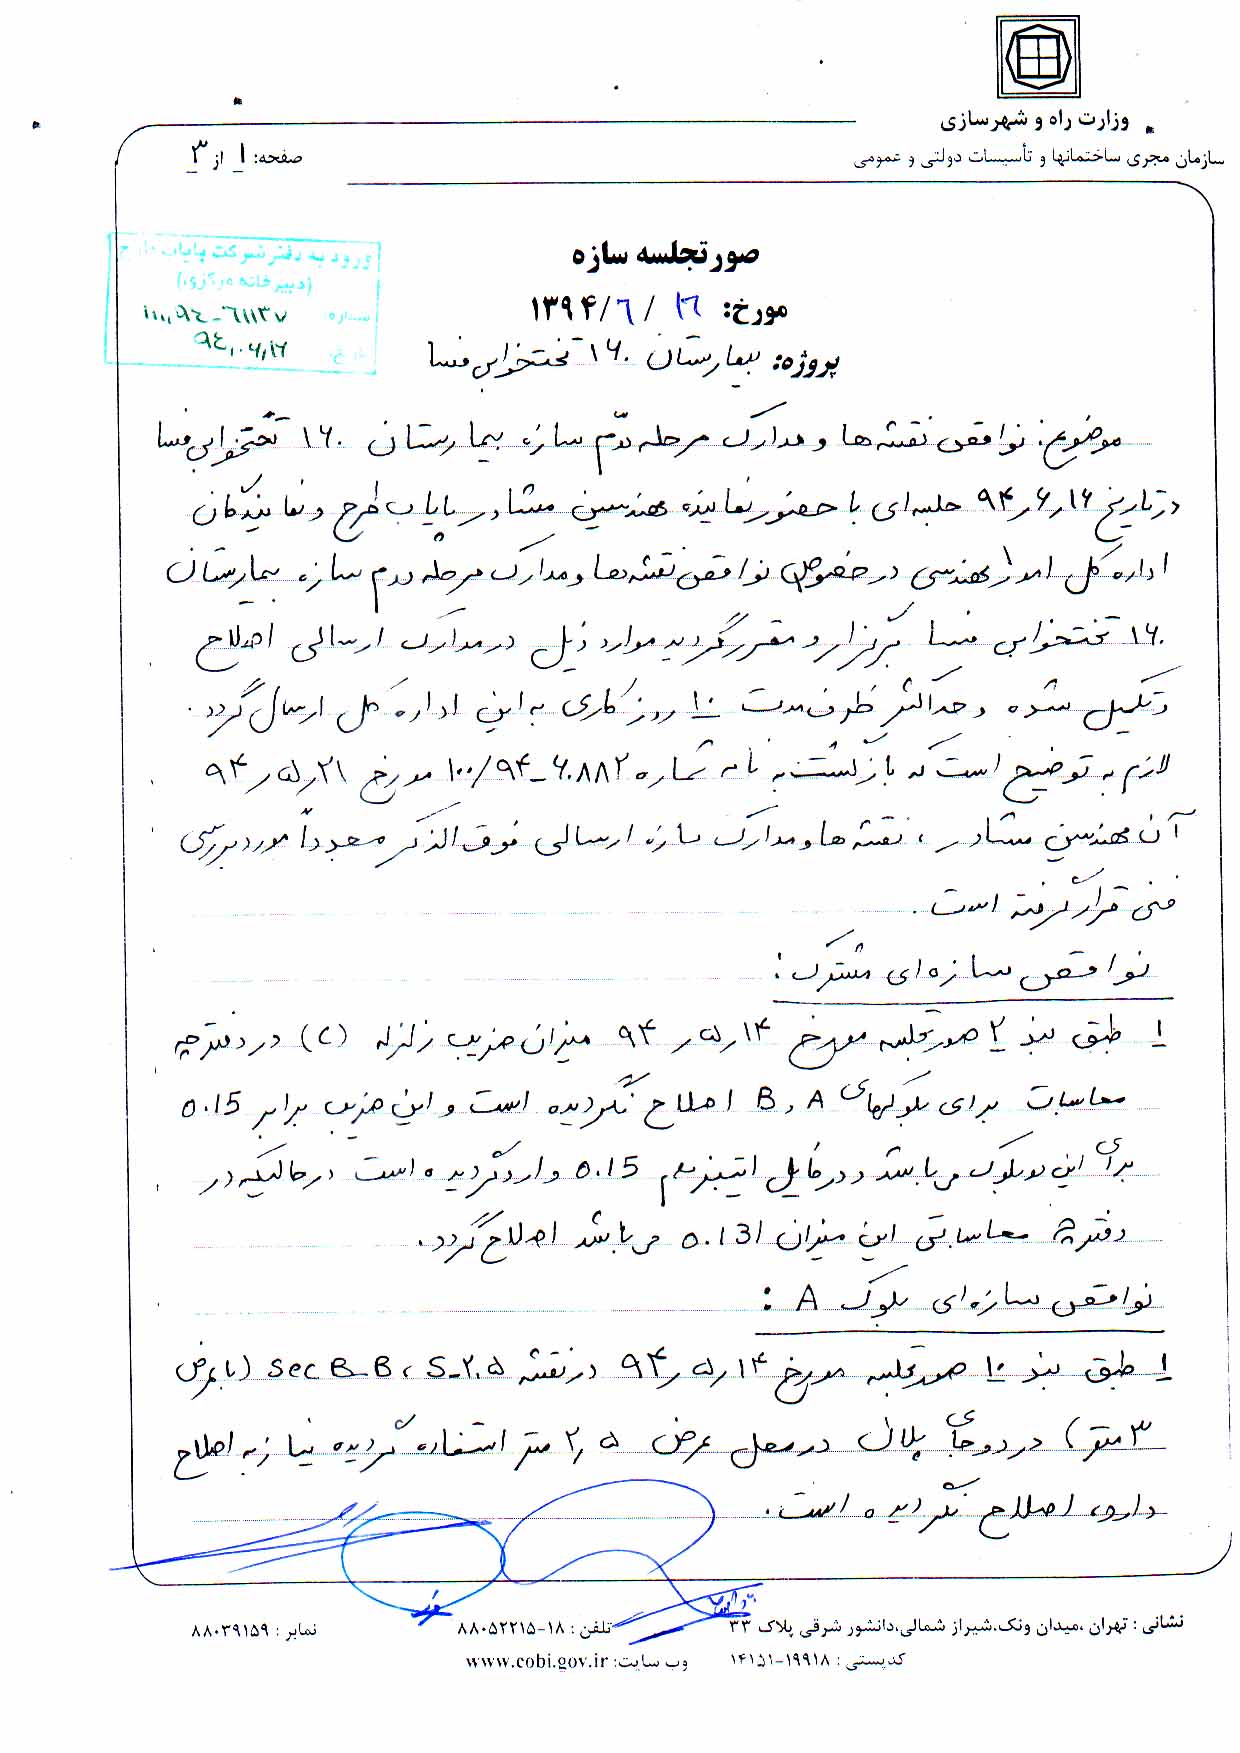 وزارت راه و شهرسازی
سازمان مجری ساختمانها و تأسیسات دولتی و عمومی
صفحه: ۱ از ۳
ورود به دفتر شرکت پایاب طرح
(دبیرخانه مرکزی)
شماره ۱۰۰,۹٤-٦۱۱۳۷
تاریخ: ۹٤,۰٦,۱٦
صورتجلسه سازه
مورخ: ۱٦ / ٦ / ۱۳۹۴
پروژه: بیمارستان ۱۶۰ تختخوابی فسا
موضوع: نواقص نقشه ها و مدارک مرحله دوّم سازه بیمارستان ۱۶۰ تختخوابی فسا
در تاریخ ۹۴٫۶٫۱۶ جلسه ای با حضور نماینده مهندسین مشاور پایاب طرح و نمایندگان
اداره کل امور مهندسی در خصوص نواقص نقشه ها و مدارک مرحله دوم سازه بیمارستان
۱۶۰ تختخوابی فسا برگزار و مقرر گردید موارد ذیل در مدارک ارسالی اصلاح
و تکمیل شده و حداکثر ظرف مدت ۱۰ روز کاری به این اداره کل ارسال گردد.
لازم به توضیح است که بازگشت به نامه شماره ۱۰۰/۹۴-۶۰۸۸۲ مورخ ۹۴٫۵٫۲۱
آن مهندسین مشاور، نقشه ها و مدارک سازه ارسالی فوق الذکر مجدداً مورد بررسی
فنی قرار گرفته است.
نواقص سازه ای مشترک:
۱ طبق بند ۲ صورتجلسه مورخ ۹۴٫۵٫۱۴ میزان ضریب زلزله (C) در دفترچه
محاسبات برای بلوکهای A و B اصلاح نگردیده است و این ضریب برابر 0.15
برای این دو بلوک می باشد و در فایل ایتبز هم 0.15 وارد گردیده است در حالیکه در
دفترچه محاسباتی این میزان 0.131 می باشد اصلاح گردد.
نواقص سازه ای بلوک A :
۱ طبق بند ۱۰ صورتجلسه مورخ ۹۴٫۵٫۱۴ در نقشه S-2.5 ، Sec B-B (با عرض
۳ متر) در دو جای پلان در محل عرض ۲٫۵ متر استفاده گردیده نیاز به اصلاح
دارد، اصلاح نگردیده است.
نشانی : تهران ،میدان ونک،شیراز شمالی،دانشور شرقی پلاک ۳۳ تلفن : ۱۸-۸۸۰۵۲۲۱۵ نمابر : ۸۸۰۳۹۱۵۹
کدپستی : ۱۹۹۱۸-۱۴۱۵۱ وب سایت: www.cobi.gov.ir